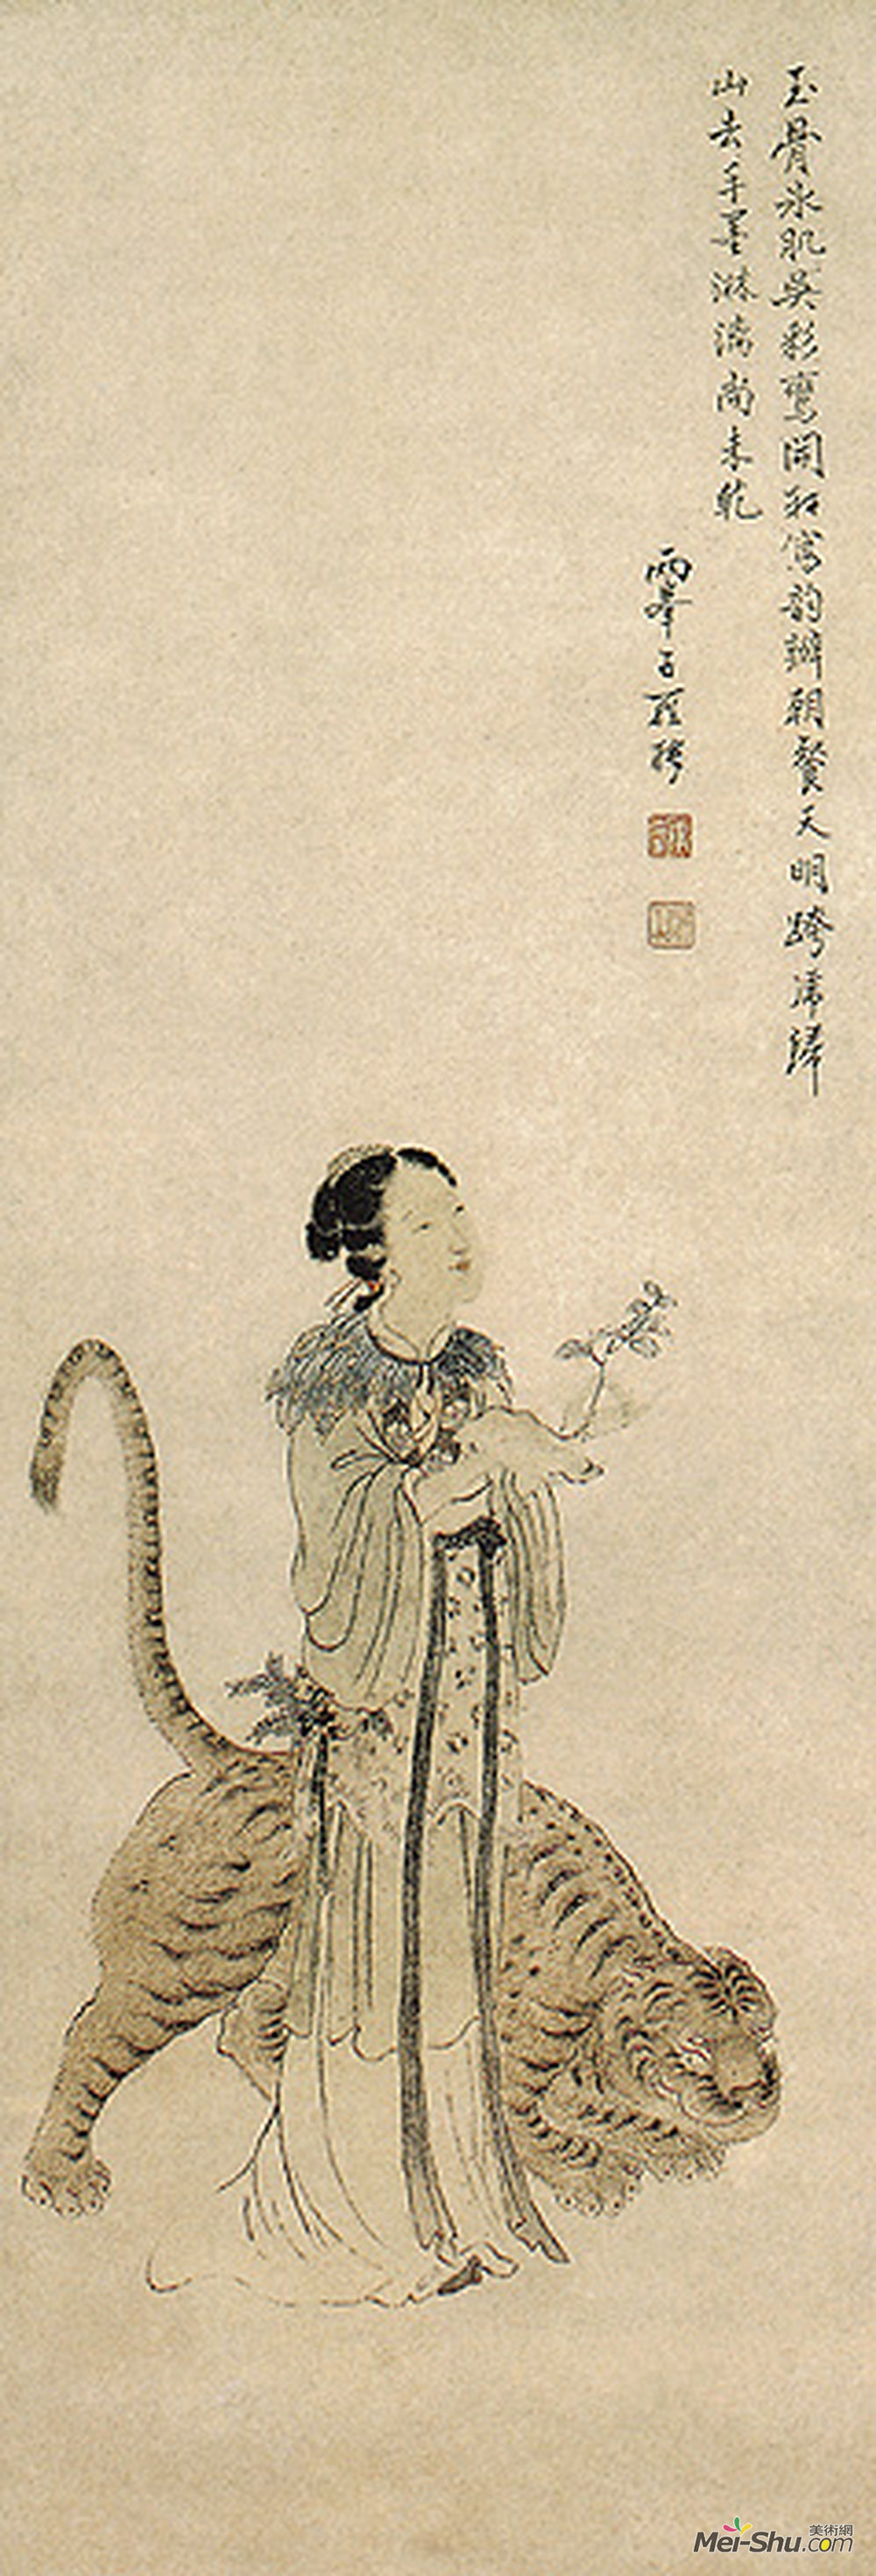 玉骨氷肌吳彩鸞開軒寫韵辦朝餐天明跨虎歸
山去手墨淋漓尚未乾
兩峯子羅聘
美術網
Mei-Shu.com